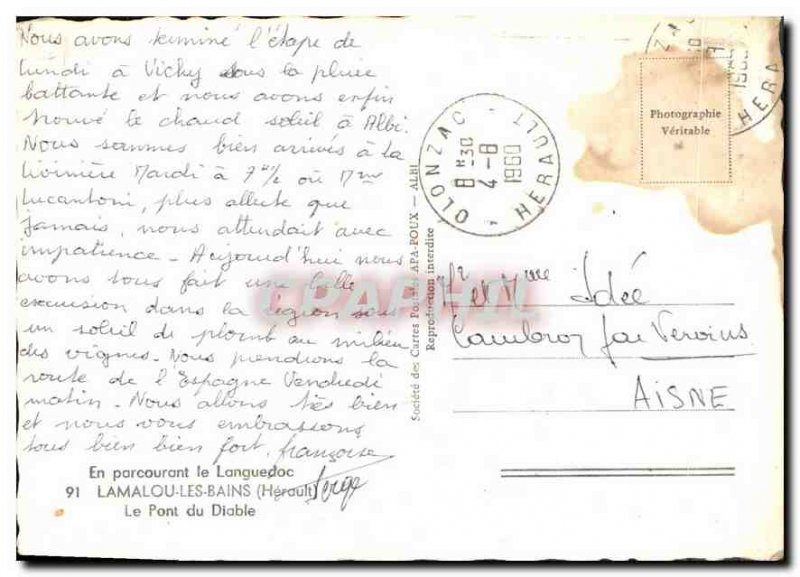 Nous avons terminé l'étape de
lundi à Vichy sous la pluie
battante et nous avons enfin
trouvé le chaud soleil à Albi.
Nous sommes bien arrivés à la
Livinière Mardi à 7h½ où Mme
Lucantoni, plus alerte que
jamais, nous attendait avec
impatience - Aujourd'hui nous
avons tous fait une belle
excursion dans la région sous
un soleil de plomb au milieu
des vignes. Nous prendrons la
route de l'Espagne Vendredi
matin - Nous allons très bien
et nous vous embrassons
tous bien bien fort. françoise
Serge
En parcourant le Languedoc
91 LAMALOU-LES-BAINS (Hérault)
Le Pont du Diable
Société des Cartes Postales APA-POUX — ALBI
Reproduction interdite
OLONZAC - HERAULT
8H30
4-8
1960
Photographie
Véritable
ZAC
1960
HERA
Mr et Mme Idée
par Vervins
AISNE
CPAPHIL